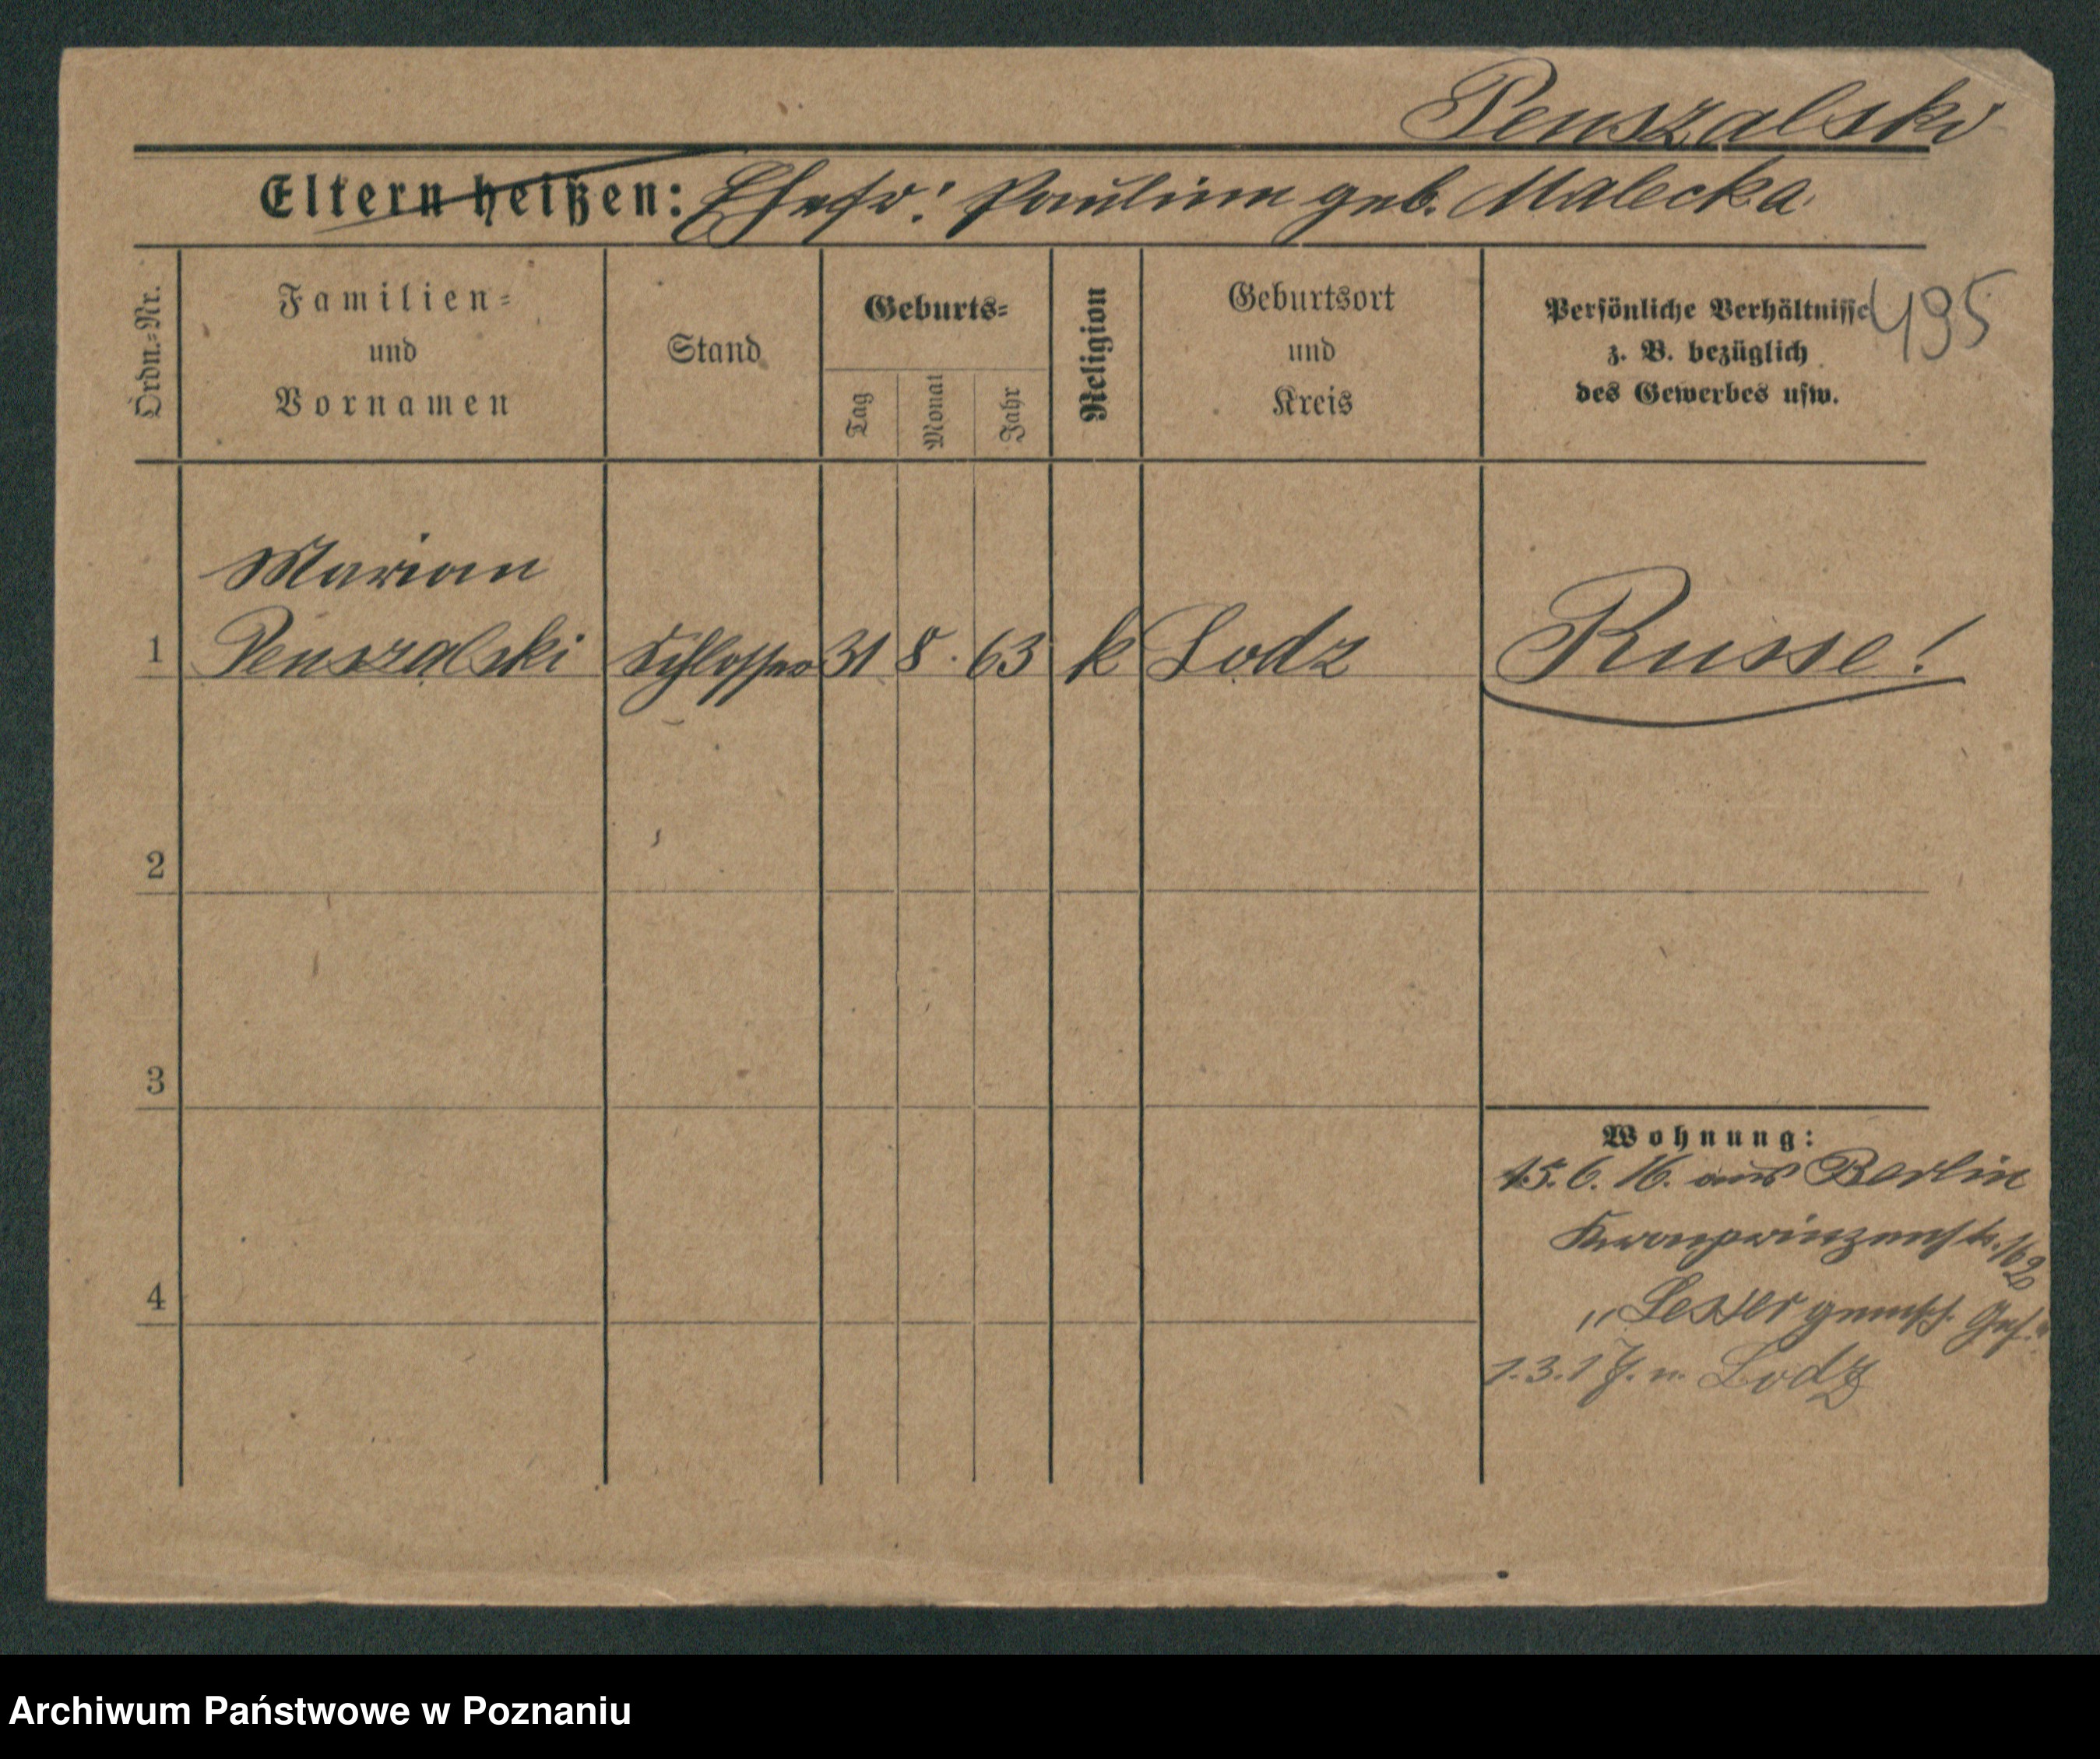 Penszalski
Eltern heißen: Ehefr: Pauline geb. Malecka.
Ordn.-Nr.
Familien-
und
Vornamen
Stand
Geburts-
Tag
Monat
Jahr
Religion
Geburtsort
und
Kreis
Persönliche Verhältnisse
z. B. bezüglich
des Gewerbes usw.
495
Marian
1 Penszalski Schlosser 31 8. 63 k Lodz Russe!
2
3
4
Wohnung:
15. 6. 16. aus Berlin
Kronprinzenstr.
"Lesser
1.3.17. n. Lodz
Archiwum Państwowe w Poznaniu